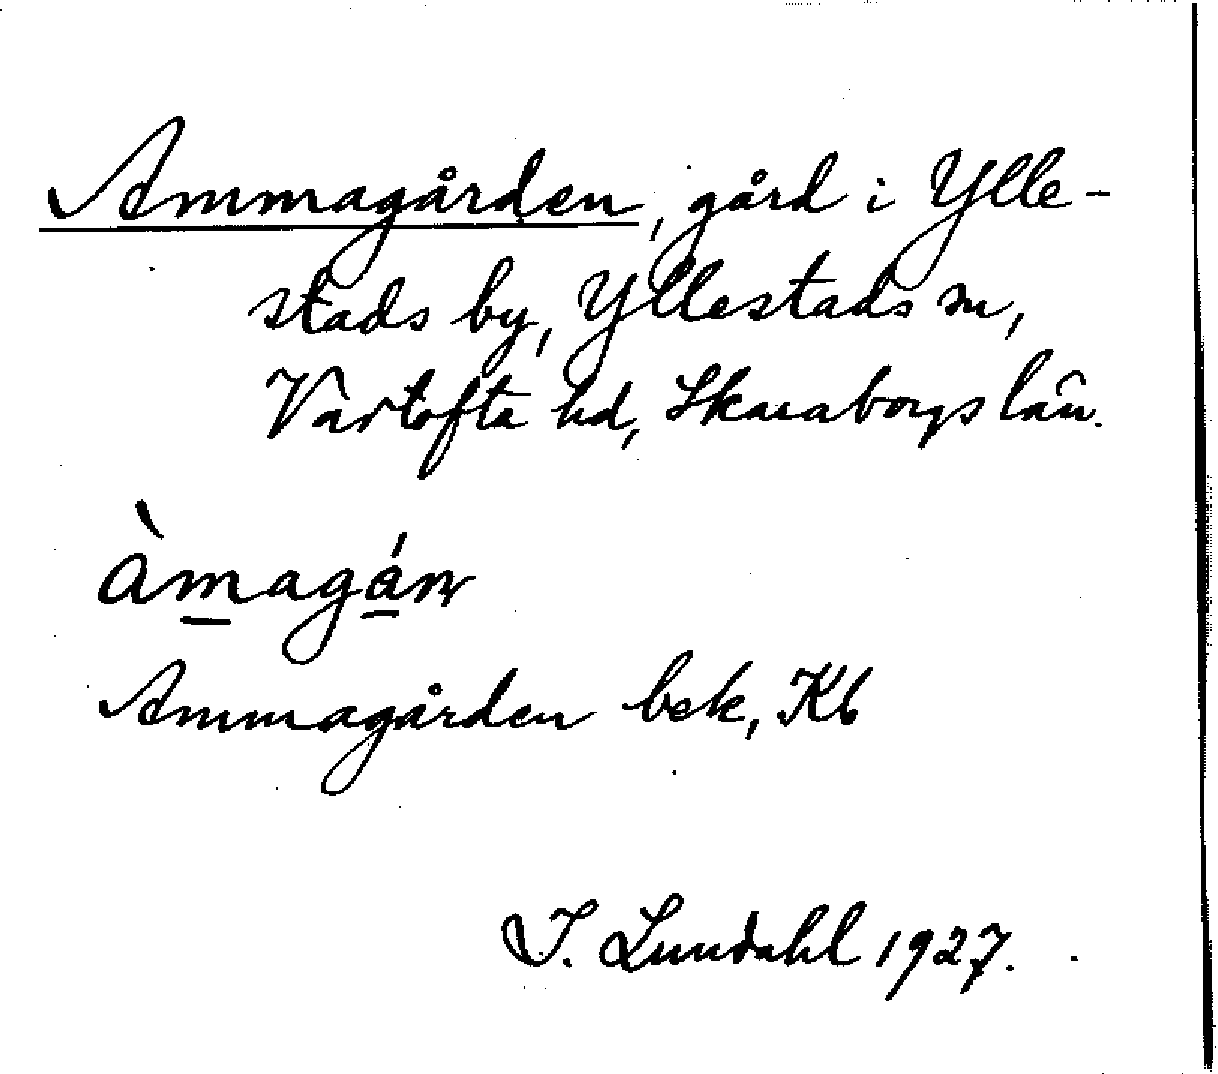 Ammagården, gård i Ylle-
stads by, Yllestads sn,
Vartofta hd, Skaraborgs län.
àmagán
Ammagården bek, Kb
I. Lundahl 1927.